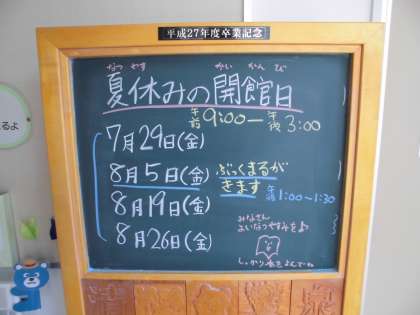 平成27年度卒業記念
なつ やす かい かん び
夏休みの開館日
午前9:00—午後3:00
7月29日(金)
8月5日(金)
ぶっくまるが
きます
午後1:00〜1:30
8月19日(金)
8月26日(金)
みなさん
よいなつやすみを♪
しっかり本をよんでね
るよ